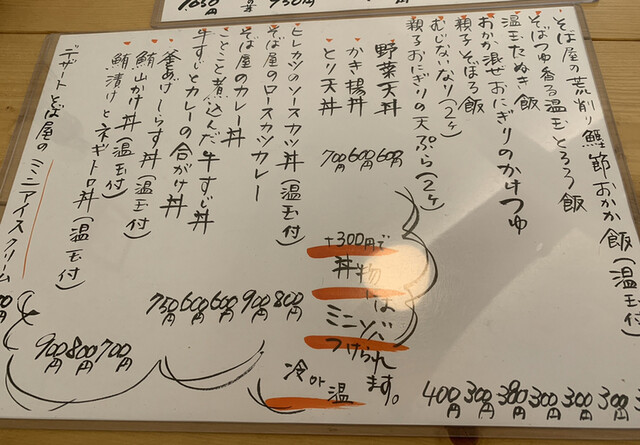 そば屋の荒削り鰹節おかか飯(温玉付)
そばつゆ香る温玉とろろ飯 300円
温玉たぬき飯 300円
おかか混ぜおにぎりのかけつゆ 300円
親子そぼろ飯 380円
むじないなり(2ヶ) 300円
親子おにぎりの天ぷら(2ヶ) 400円
野菜天丼 600円
かき揚丼 600円
とり天丼 700円
+300円で
丼物
は
ミニそば
つけられ
ます。
冷or温
ヒレカツのソースカツ丼(温玉付) 800円
そば屋のロースカツカレー 900円
そば屋のカレー丼 600円
ことこと煮込んだ牛すじ丼 600円
牛すじとカレーの合がけ丼 750円
釜あげしらす丼(温玉付) 700円
鮪山かけ丼(温玉付) 800円
鮪漬けとネギトロ丼(温玉付) 900円
デザート そば屋のミニアイスクリーム